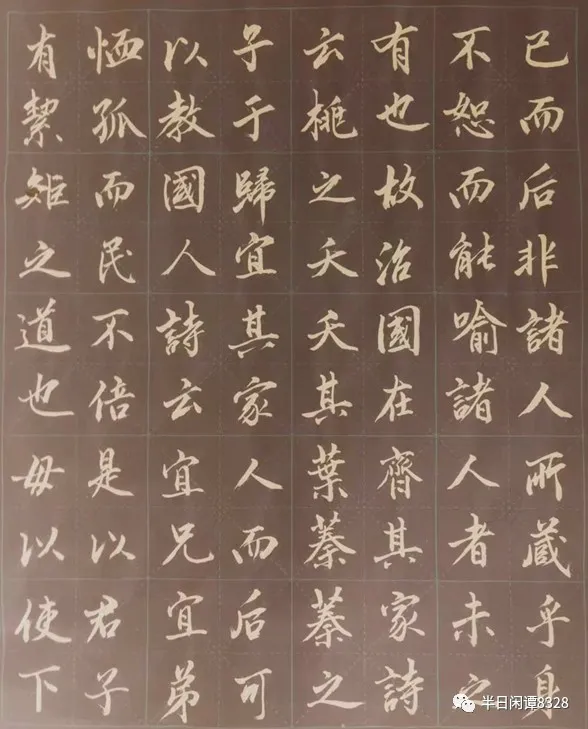 己而后非諸人所藏乎身
不恕而能喻諸人者未之
有也故治國在齊其家詩
云桃之夭夭其葉蓁蓁之
子于歸宜其家人而后可
以教國人詩云宜兄宜弟
恤孤而民不倍是以君子
有絜矩之道也毋以使下
半日闲谭8328